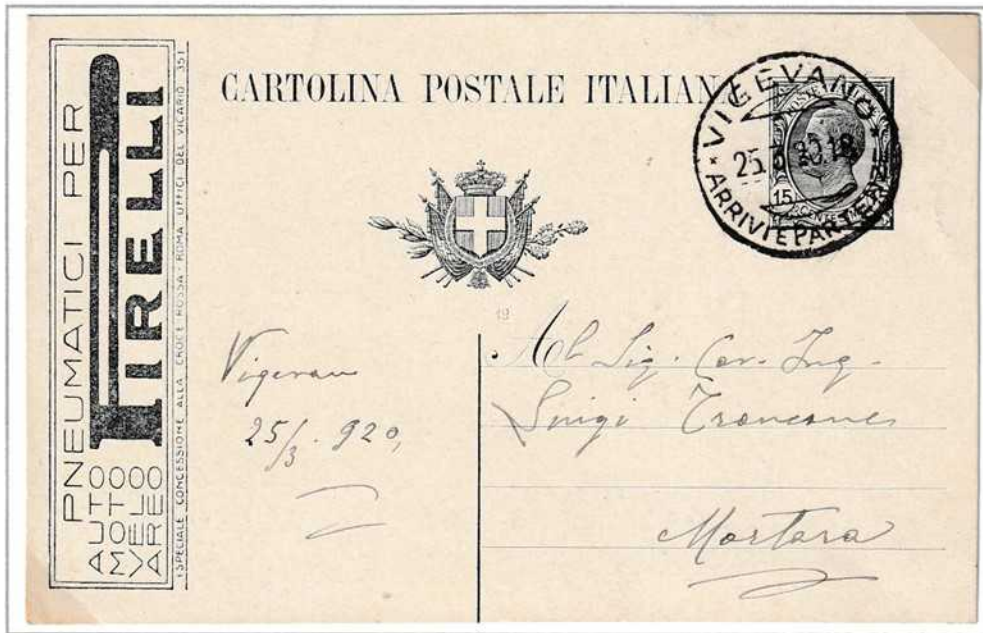 PNEUMATICI PER
AUTO
MOTO
VELO
AREO
PIRELLI
(SPECIALE CONCESSIONE ALLA CROCE ROSSA - ROMA UFFICI DEL VICARIO 35)
CARTOLINA POSTALE ITALIANA
VIGEVANO
25. 20.18
ARRIVI E PARTENZE
15
19
Vigevano
25/3. 920,
Al Sig. Cav. Ing.
Luigi Troncone
Mortara